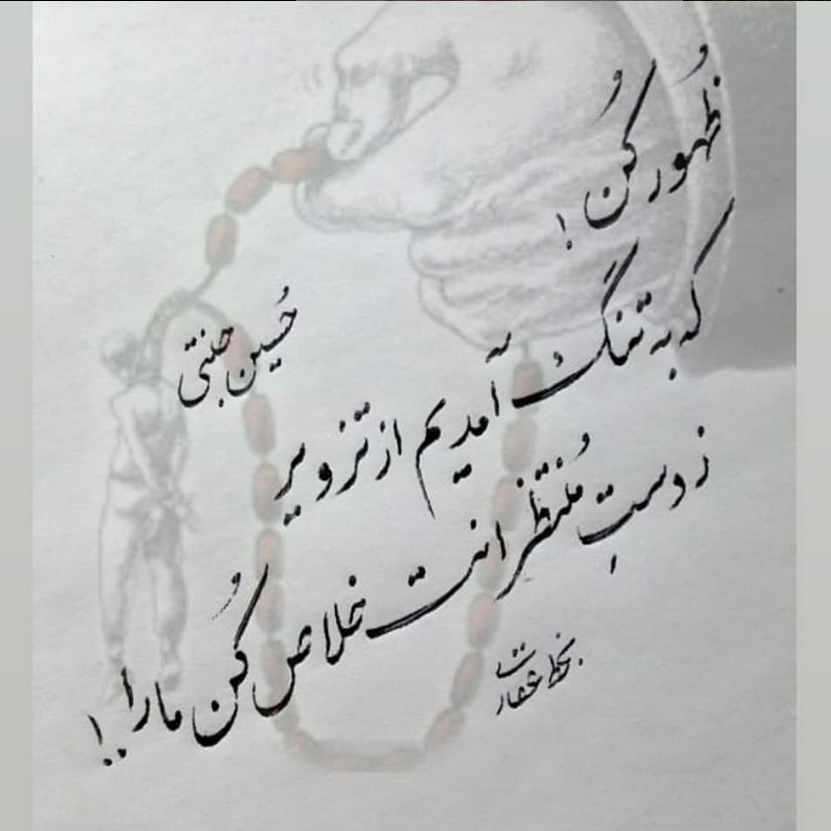 ظُهور کُن!
که به تنگ آمدیم از تزویر
ز دستِ مُنتظرانت خلاص کُن ما را..!
حُسین جنتی
بخط غفارت